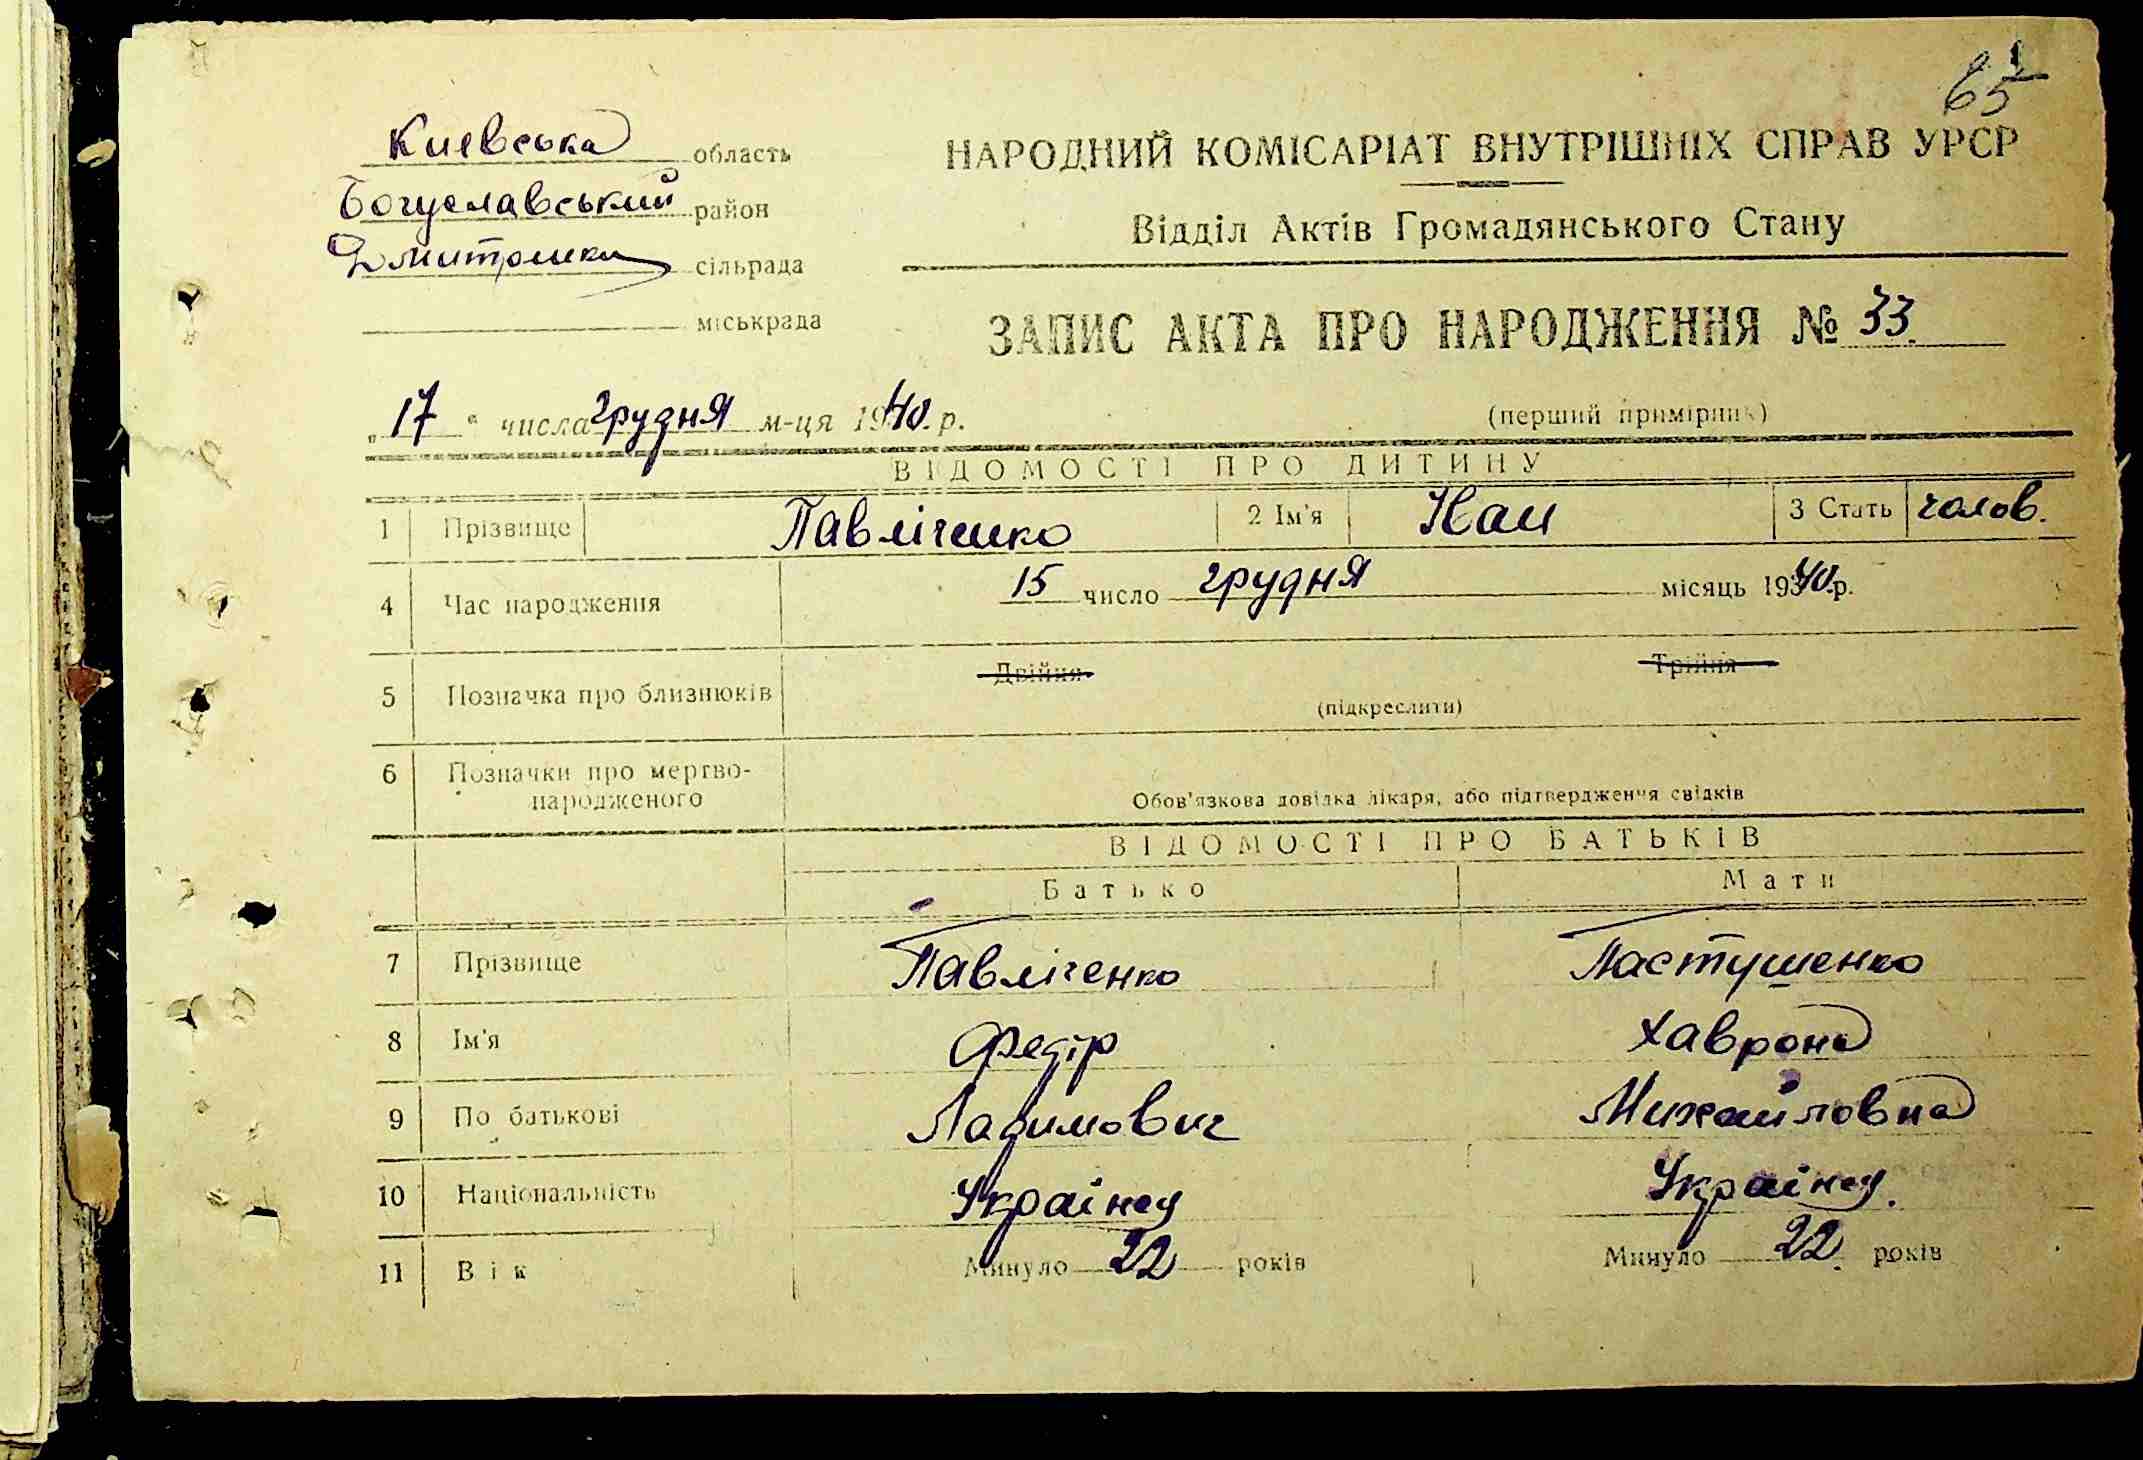 65
Киевська область
Богуславський район
Дмитренки сільрада
міськрада
НАРОДНИЙ КОМІСАРІАТ ВНУТРІШНІХ СПРАВ УРСР
Відділ Актів Громадянського Стану
ЗАПИС АКТА ПРО НАРОДЖЕННЯ № 33.
„17“ числа грудня м-ця 1940 р.
(перший примірник)
ВІДОМОСТІ ПРО ДИТИНУ
1 Прізвище Павліченко 2 Ім'я Іван 3 Стать чолов.
4 Час народження 15 число грудня місяць 1940 р.
5 Позначка про близнюків Двійня Трійня
(підкреслити)
6 Позначки про мертво-
народженого
Обов'язкова довідка лікаря, або підтвердження свідків
ВІДОМОСТІ ПРО БАТЬКІВ
Батько Мати
7 Прізвище Павліченко Пастушенко
8 Ім'я Федір Хаврона
9 По батькові Михайловна
10 Національність Українец Українец.
11 Вік Минуло 22 років Минуло 22 років